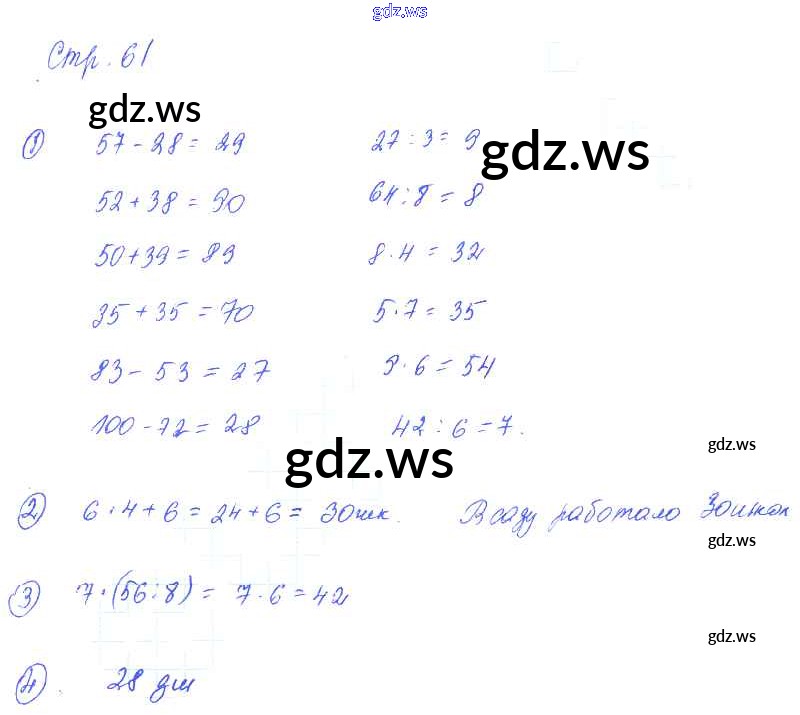 gdz.ws
Стр. 61
gdz.ws
1 57 - 28 = 29 27 : 3 = 9
gdz.ws
52 + 38 = 90 64 : 8 = 8
50 + 39 = 89 8 · 4 = 32
35 + 35 = 70 5 · 7 = 35
83 - 53 = 27 9 · 6 = 54
100 - 72 = 28 42 : 6 = 7.
gdz.ws
gdz.ws
2 6 · 4 + 6 = 24 + 6 = 30 шк. В саду работало 30 шк
gdz.ws
3 7 · (56 : 8) = 7 · 6 = 42
gdz.ws
4. 28 дм